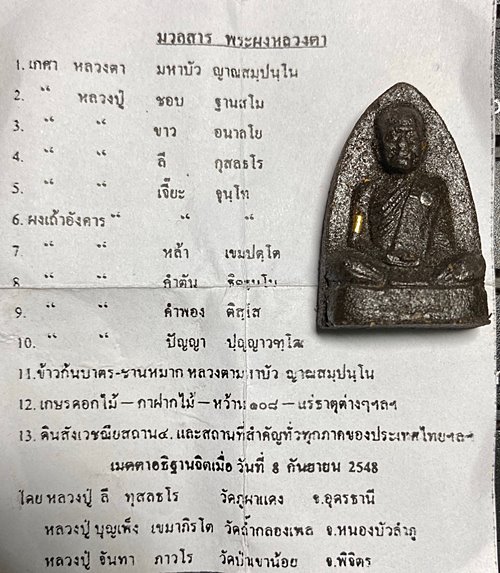 มวลสาร พระผงหลวงตา
1. เกศา หลวงตา มหาบัว ญาณสมฺปนฺโน
2. “ หลวงปู่ ชอบ ฐานสโม
3. “ “ ขาว อนาลโย
4. “ “ ลี กุสลธโร
5. “ “ เจี๊ยะ จุนฺโท
6. ผงเถ้าอังคาร “ “ “
7 “ “ หล้า เขมปตฺโต
8 “ “ คำตัน
9. “ “ คำพอง ติสฺโส
10. “ “ ปัญญา ปญฺญาวฑฺโฒ
11. ข้าวก้นบาตร-ชานหมาก หลวงตามหาบัว ญาณสมฺปนฺโน
12. เกษรดอกไม้ – กาฝากไม้ – หว้าน ๑๐๘ – แร่ธาตุต่างๆฯลฯ
13. ดินสังเวชณียสถาน๔. และสถานที่สำคัญทั่วทุกภาคของประเทศไทยฯลฯ
เมตตาอธิฐานจิตเมื่อ วันที่ 8 กันยายน 2548
โดย หลวงปู่ ลี กุสลธโร วัดภูผาแดง จ.อุดรธานี
หลวงปู่ บุญเพ็ง เขมาภิรโต วัดถ้ำกลองเพล จ.หนองบัวลำภู
หลวงปู่ จันทา ภาวโร วัดป่าเขาน้อย จ.พิจิตร